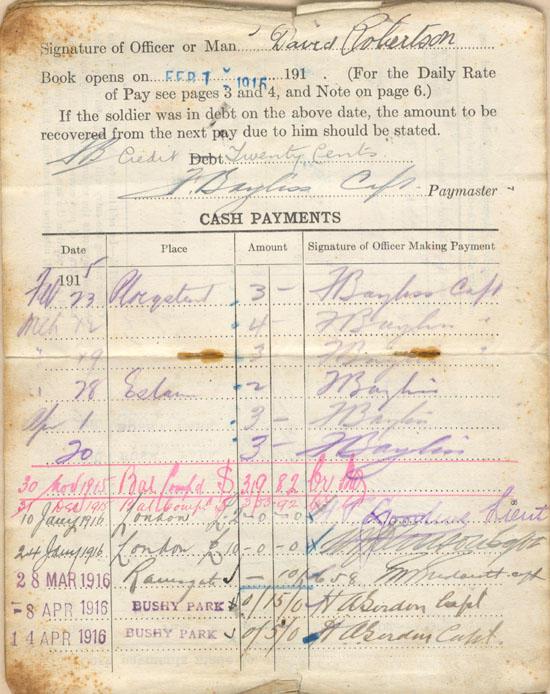 Signature of Officer or Man David Robertson
Book opens on FEB 1 1915 191 . (For the Daily Rate
of Pay see pages 3 and 4, and Note on page 6.)
If the soldier was in debt on the above date, the amount to be
recovered from the next pay due to him should be stated.
Credit Debt Twenty Cents
F. Bayliss Capt. Paymaster
CASH PAYMENTS
Date Place Amount Signature of Officer Making Payment
1915
Feb 23 Ploegstert 3 - F Bayliss Capt
Mch 12 4 - F Bayliss "
" 19 3 F Bayliss "
" 28 Estair 2 F Bayliss
Apr 1 3 - F Bayliss
20 3 - F Bayliss
30 Nov 1915 Bal Comp'd $ 319.82
31 Dec 1915 Bal Comp'd $
10 Jany 1916 London £ - 0 - 0 Lieut
24 Jany 1916 London £10 - 0 - 0 Capt
28 MAR 1916 Ramsgate - 10/ Capt
- 8 APR 1916 BUSHY PARK 0/15/0 H A Gordon Capt
14 APR 1916 BUSHY PARK 0/5/0 H A Gordon Capt.